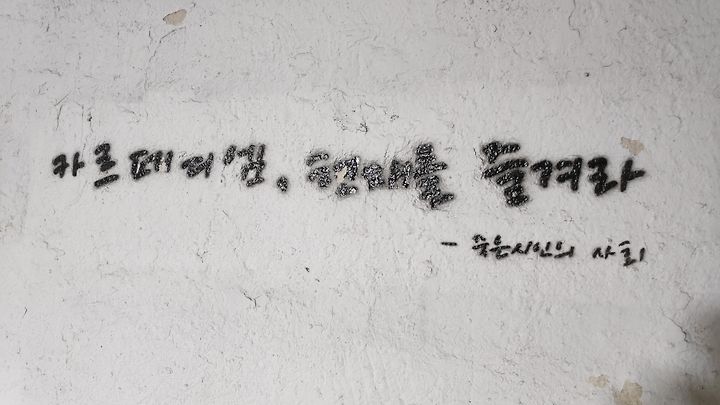 카르페디엠, 현재를 즐겨라
- 죽은시인의 사회